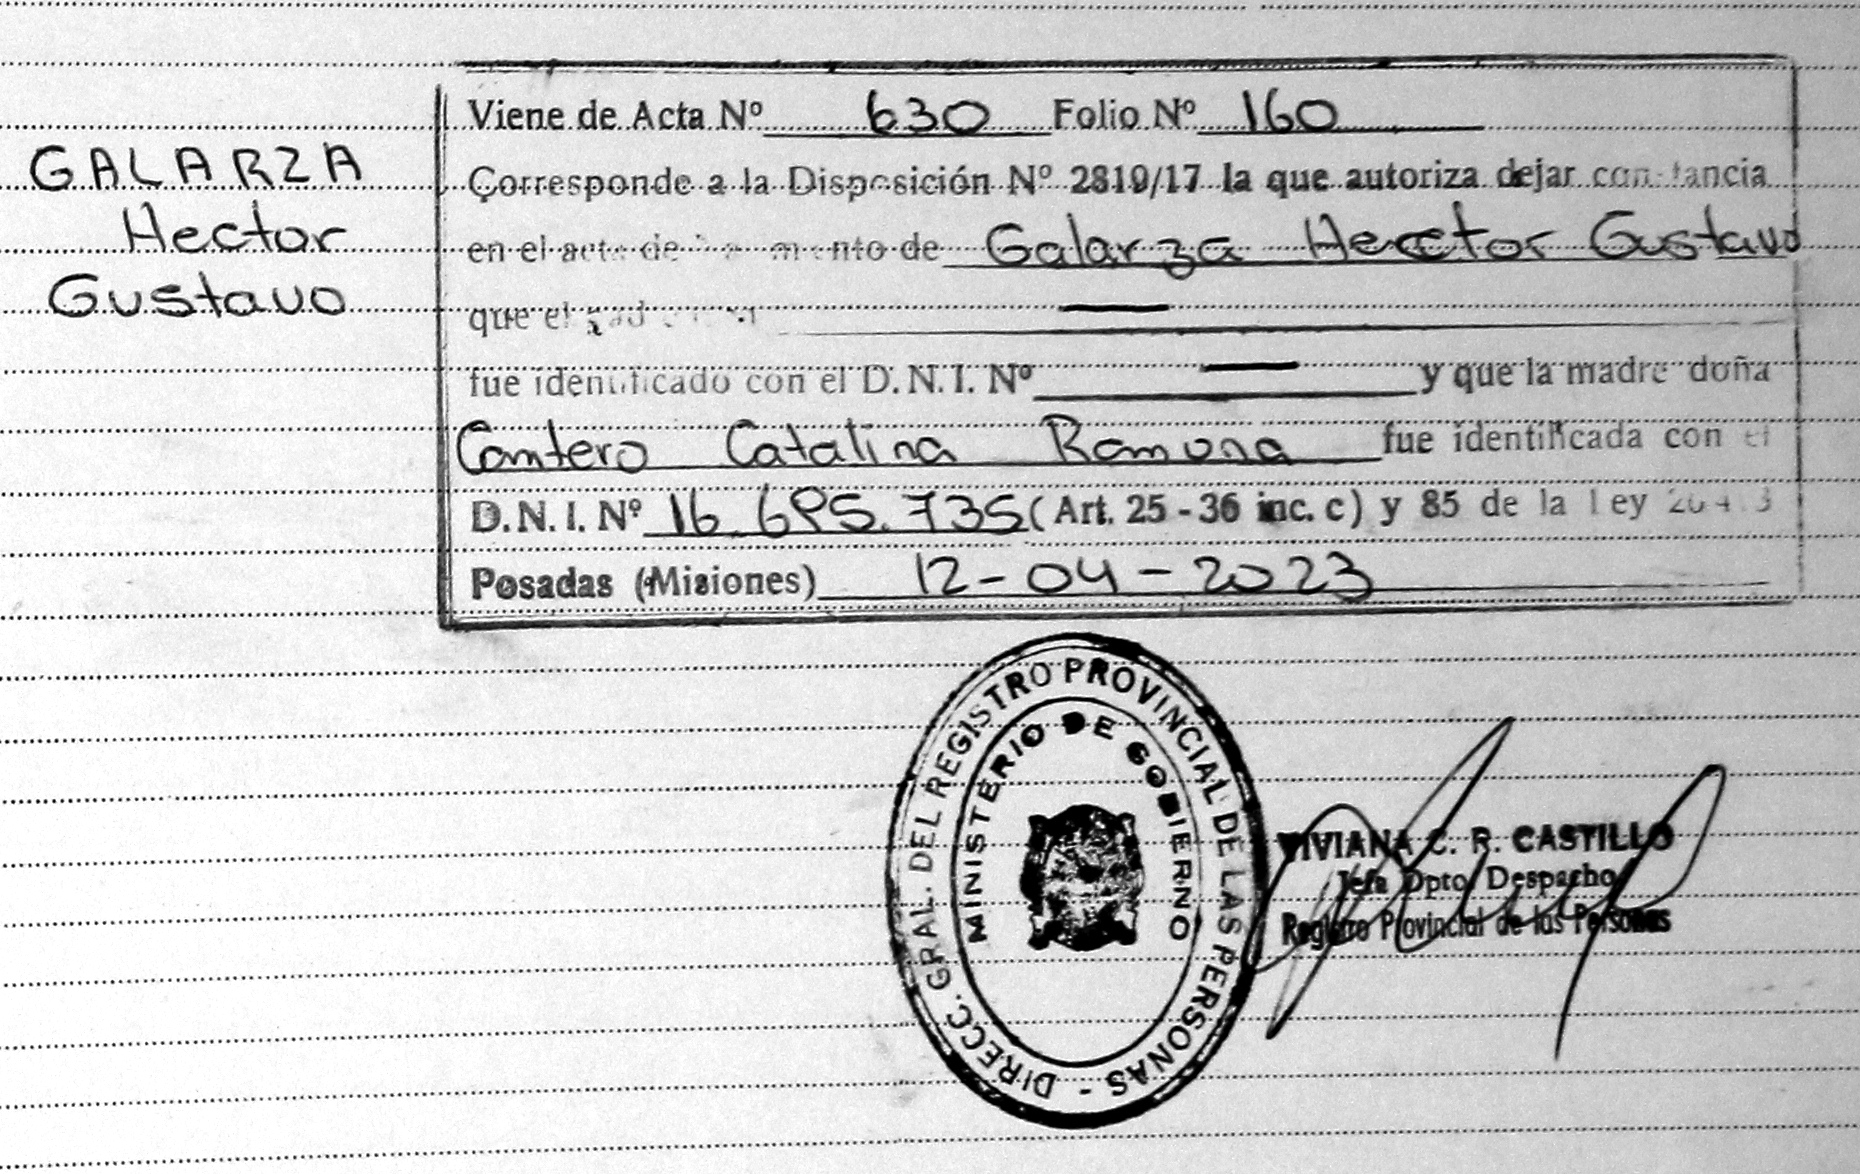 GALARZA
Hector
Gustavo
Viene de Acta Nº 630 Folio Nº 160
Corresponde a la Disposición Nº 2819/17 la que autoriza dejar constancia
en el acta de de Galarza Hecctor Gustavo
que el —
fue identificado con el D.N.I. Nº — y que la madre doña
Cantero Catalina Ramona fue identificada con el
D.N.I. Nº 16.695.735 (Art. 25 - 36 inc. c) y 85 de la Ley
Posadas (Misiones) 12-04-2023
DIRECC. GRAL. DEL REGISTRO PROVINCIAL DE LAS PERSONAS -
MINISTERIO DE GOBIERNO
VIVIANA C. R. CASTILLO
Jefa Dpto Despacho
Registro Provincial de las Personas